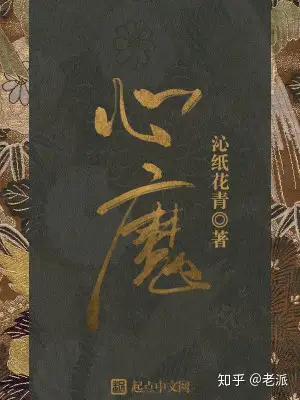 心魔
沁纸花青◎著
起点中文网
知乎 @老派